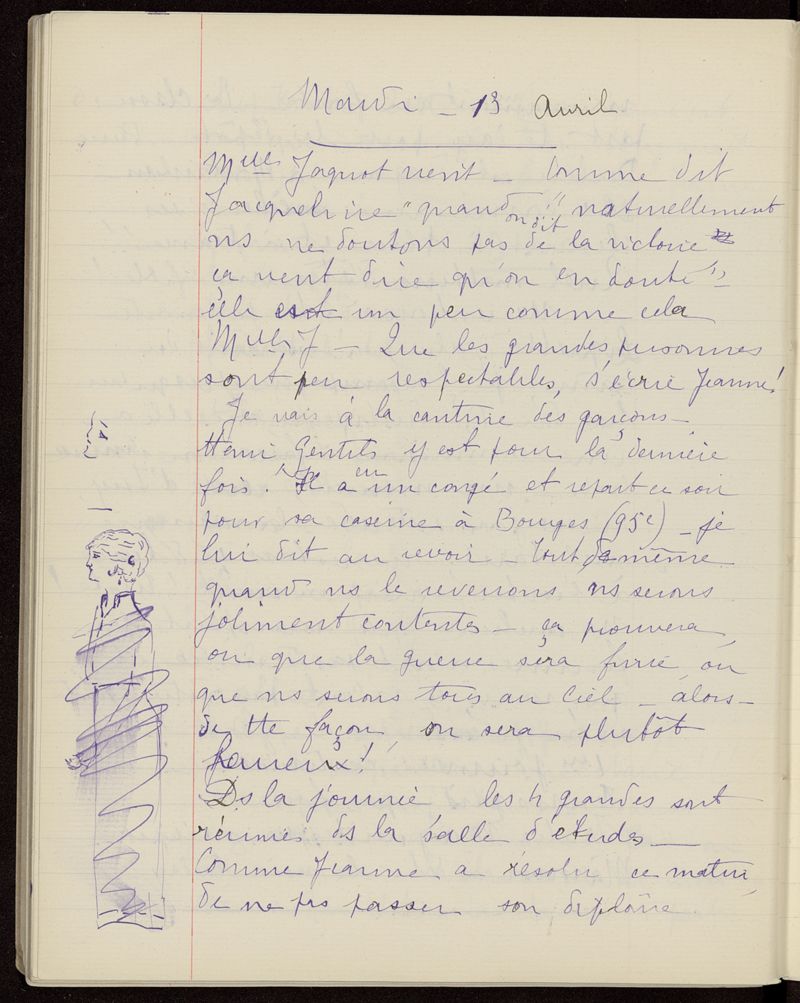 Mardi - 13 Avril
Mlle Jaquot vient - Comme dit
Jacqueline "quand on dit" naturellement
ns ne doutons pas de la victoire
ça veut dire qu'on en doute" -
elle est un peu comme cela
Mlle J - Que les grandes personnes
sont peu respectables, s'écrie Jeanne!
Je vais à la cantine des garçons -
Henri Gentils y est pour la dernière
fois. Il a eu un congé et repart ce soir
pour sa caserne à Bourges (95e) - je
lui dit au revoir - tout de même
quand ns le reverrons ns serons
joliment contentes - ça prouvera
ou que la guerre sera finie ou
que ns serons tous au Ciel - alors -
de tte façon, on sera plutôt
heureux!
Ds la journée les 4 grandes sont
réunies ds la salle d'études -
Comme Jeanne a résolu ce matin
de ne pas passer son diplôme